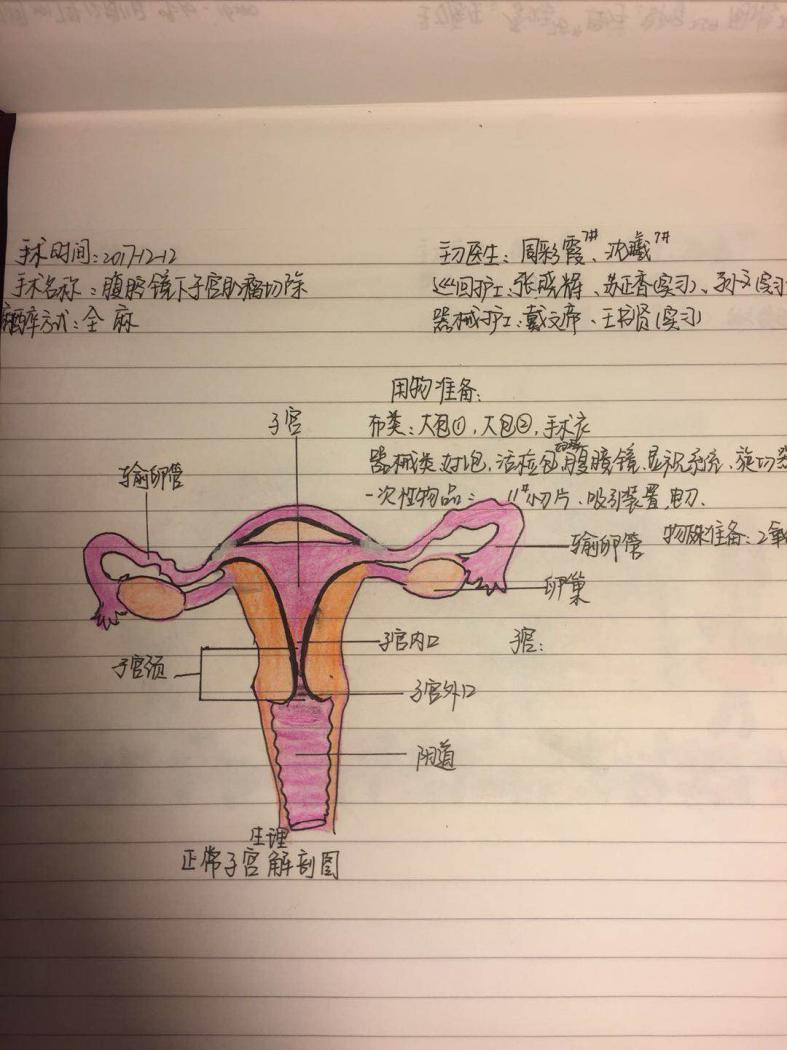 手术时间：2017-12-12
主刀医生：周彩霞7#、沈曦7#
手术名称：腹腔镜下子宫肌瘤切除
巡回护士：张晓辉、苏正香(实习)、孙文(实习
麻醉方式：全麻
器械护士：戴文席、王书贤(实习)
用物准备：
布类：大包①，大包②，手术衣
器械类：妇包，活检包，腹腔镜，显视系统、旋切器
一次性物品： 11#小刀片、吸引装置，电刀.
物殊准备：2氧
子宫
输卵管
输卵管
卵巢
子宫内口
子宫：
子宫颈
子宫外口
阴道
生理
正常子宫解剖图